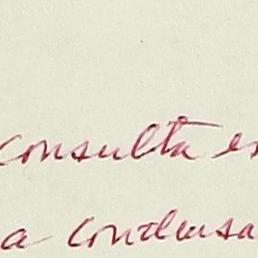 consulta es
a condensa